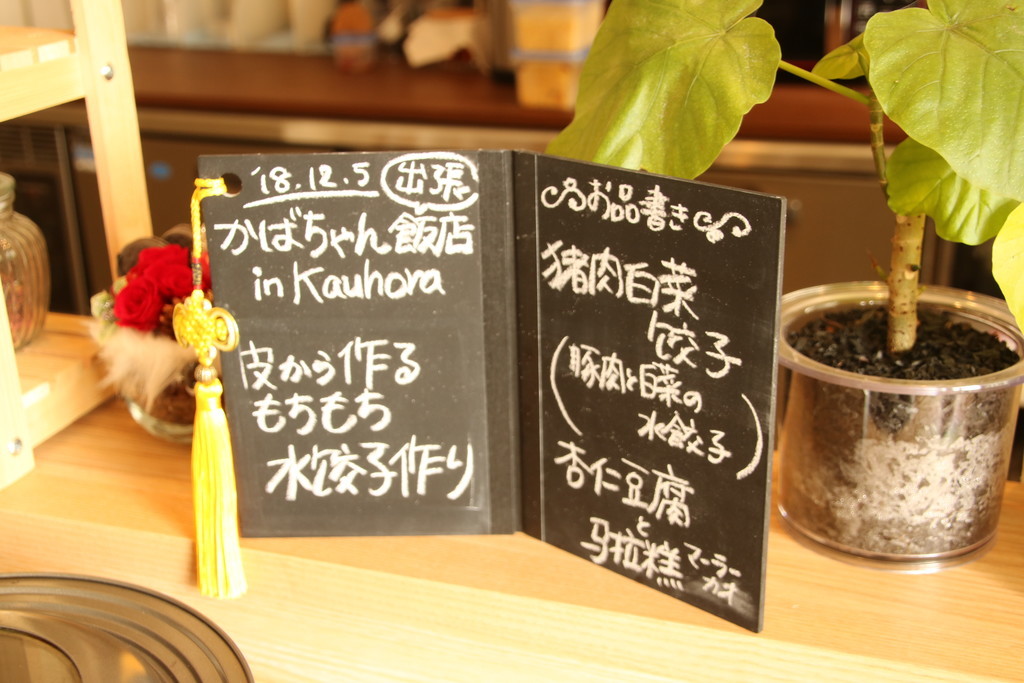 '18.12.5 出張
かばちゃん飯店
in Kauhora
皮から作る
もちもち
水餃子作り
お品書き
猪肉白菜
餃子
(豚肉と白菜の
水餃子)
杏仁豆腐
と
马拉糕 マーラー
カオ